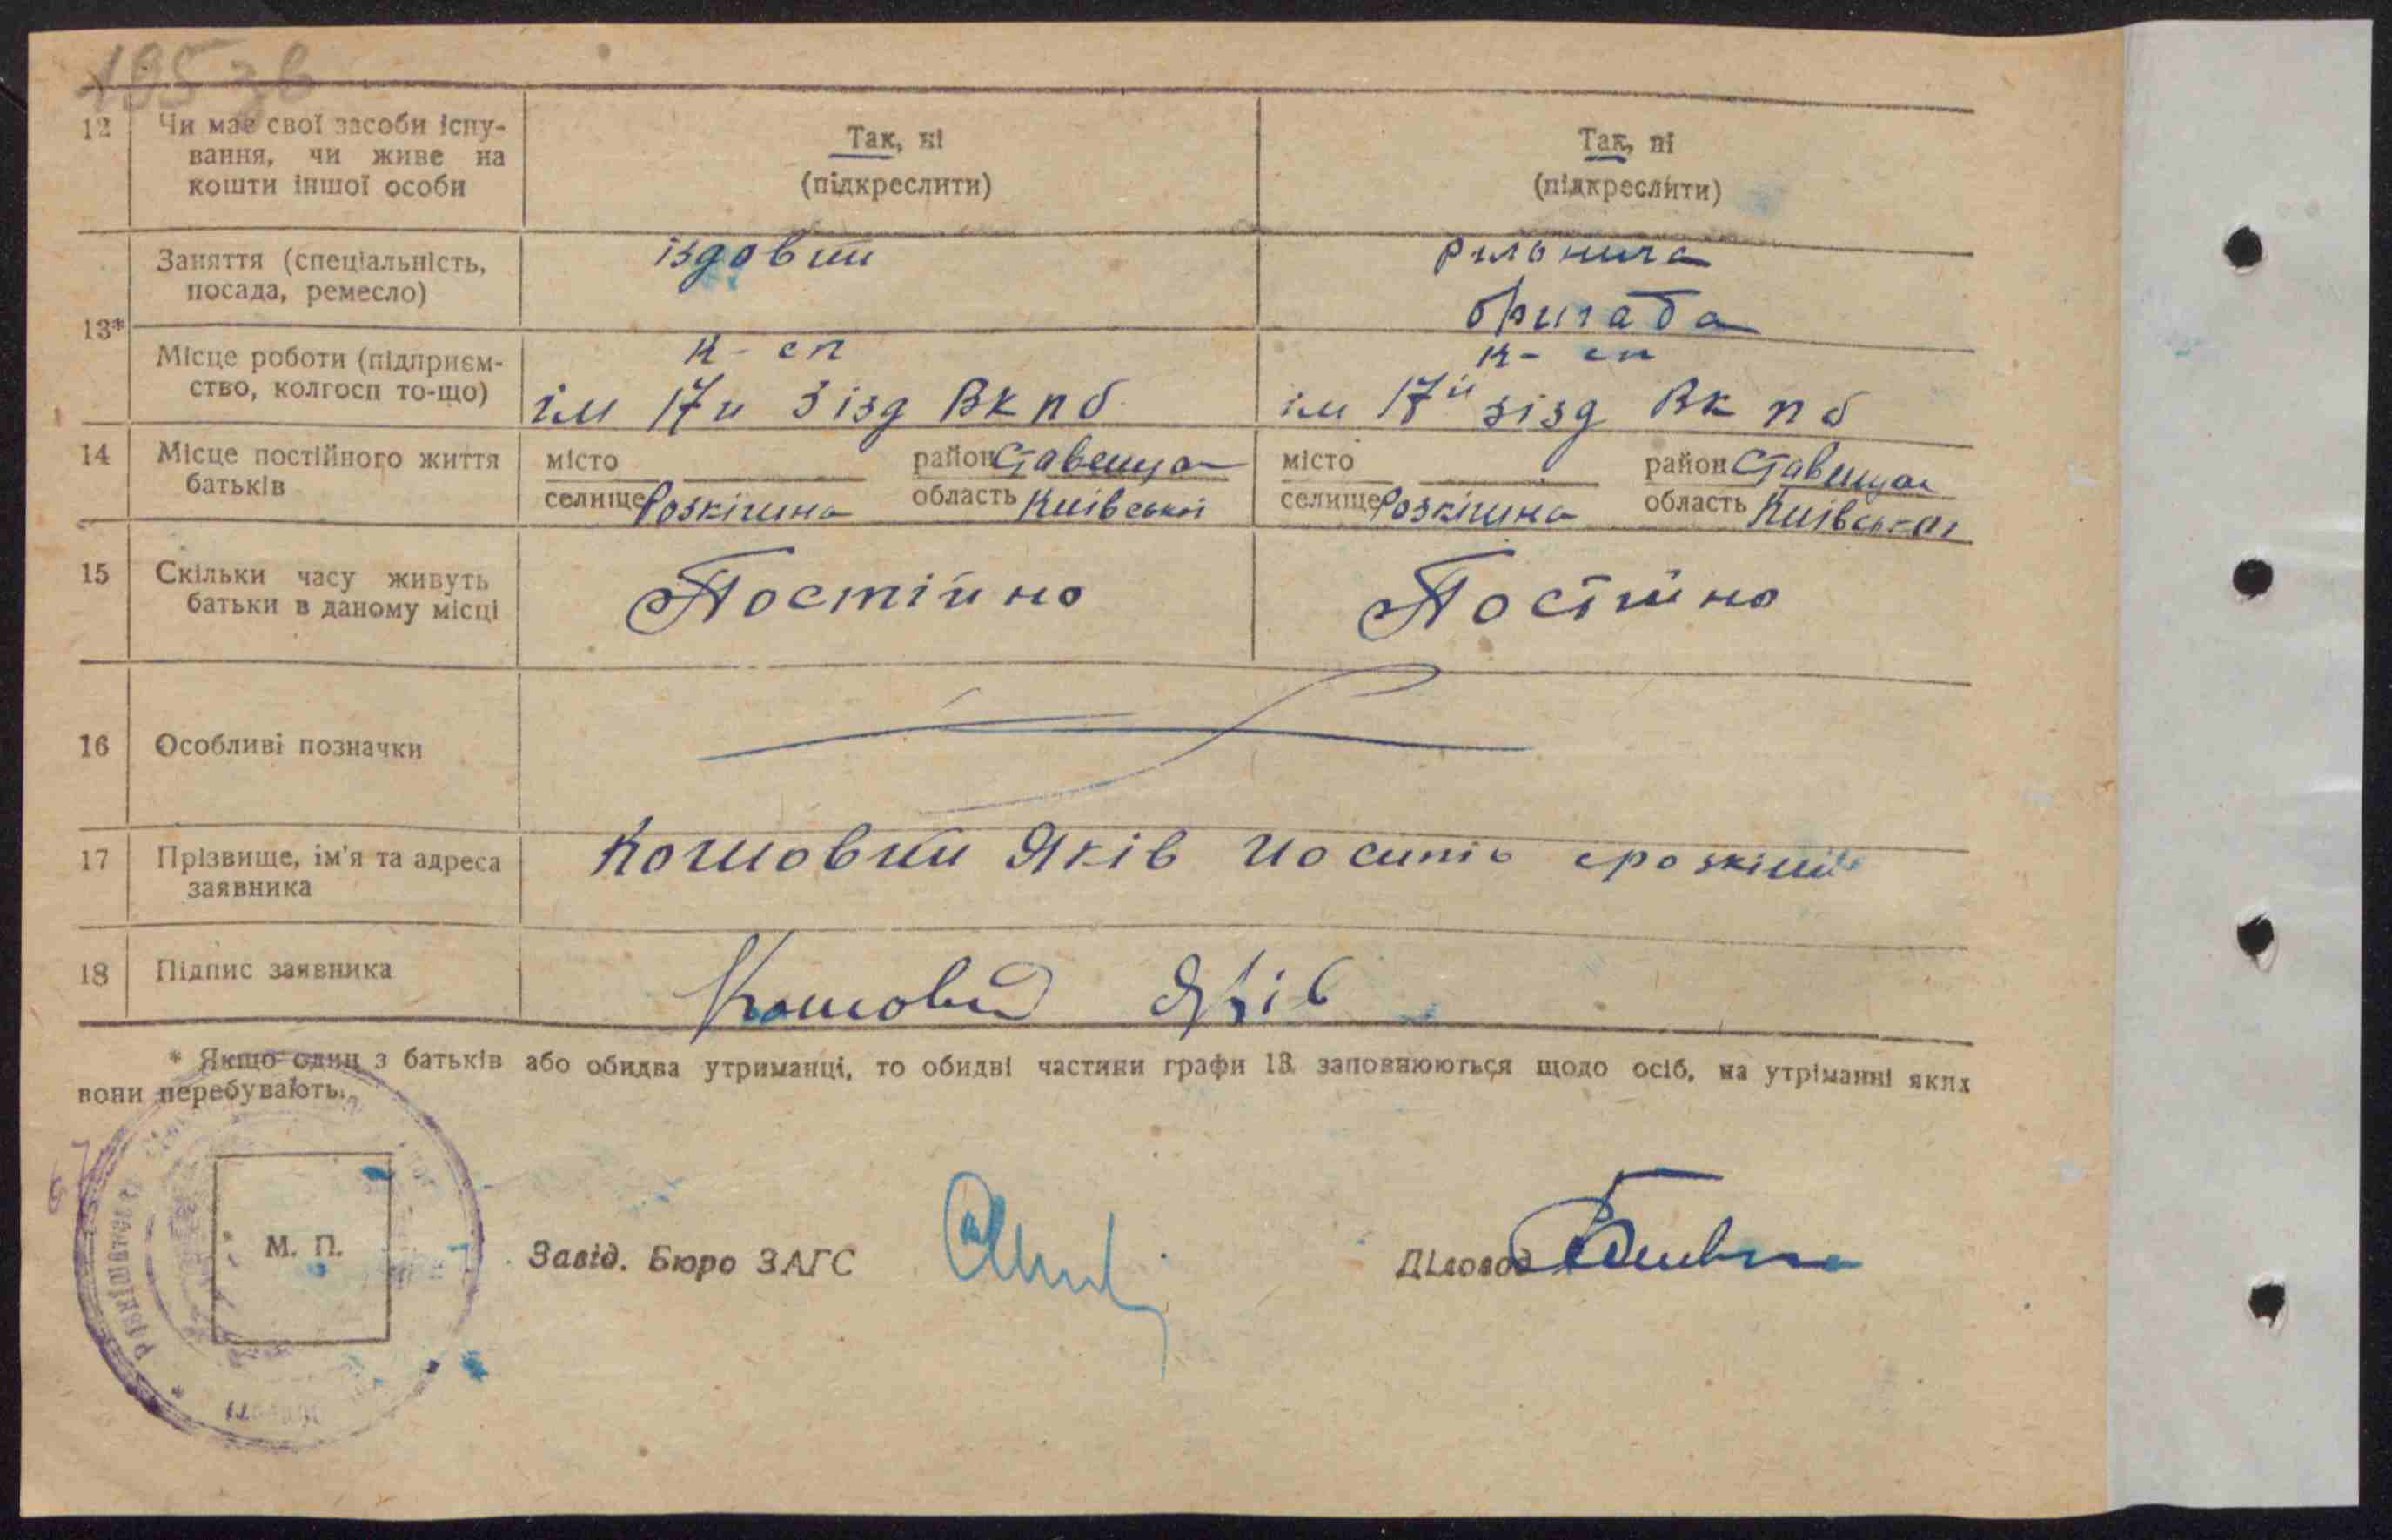 195 зв
12 Чи має свої засоби існу-
вання, чи живе на
кошти іншої особи
Так, ні
(підкреслити)
Так, ні
(підкреслити)
13*
Заняття (спеціальність,
посада, ремесло)
іздовий
рільнича
бригада
Місце роботи (підприєм-
ство, колгосп то-що)
к-сп
ім 17й Зізд Вкпб
к-сп
ім 17й зізд Вкпб
14 Місце постійного життя
батьків
місто район Ставища
селище Розкішна область Київської
місто район Ставища
селище Розкішна область Київської
15 Скільки часу живуть
батьки в даному місці
Постійно
Постійно
16 Особливі позначки
17 Прізвище, ім'я та адреса
заявника
Кошовий Яків Йосипів
18 Підпис заявника
Кошовий Яків
* Якщо один з батьків або обидва утриманці, то обидві частини графи 13 заповнюються щодо осіб, на утріманні яких
вони перебувають.
М. П.
Завід. Бюро ЗАГС
Діловод